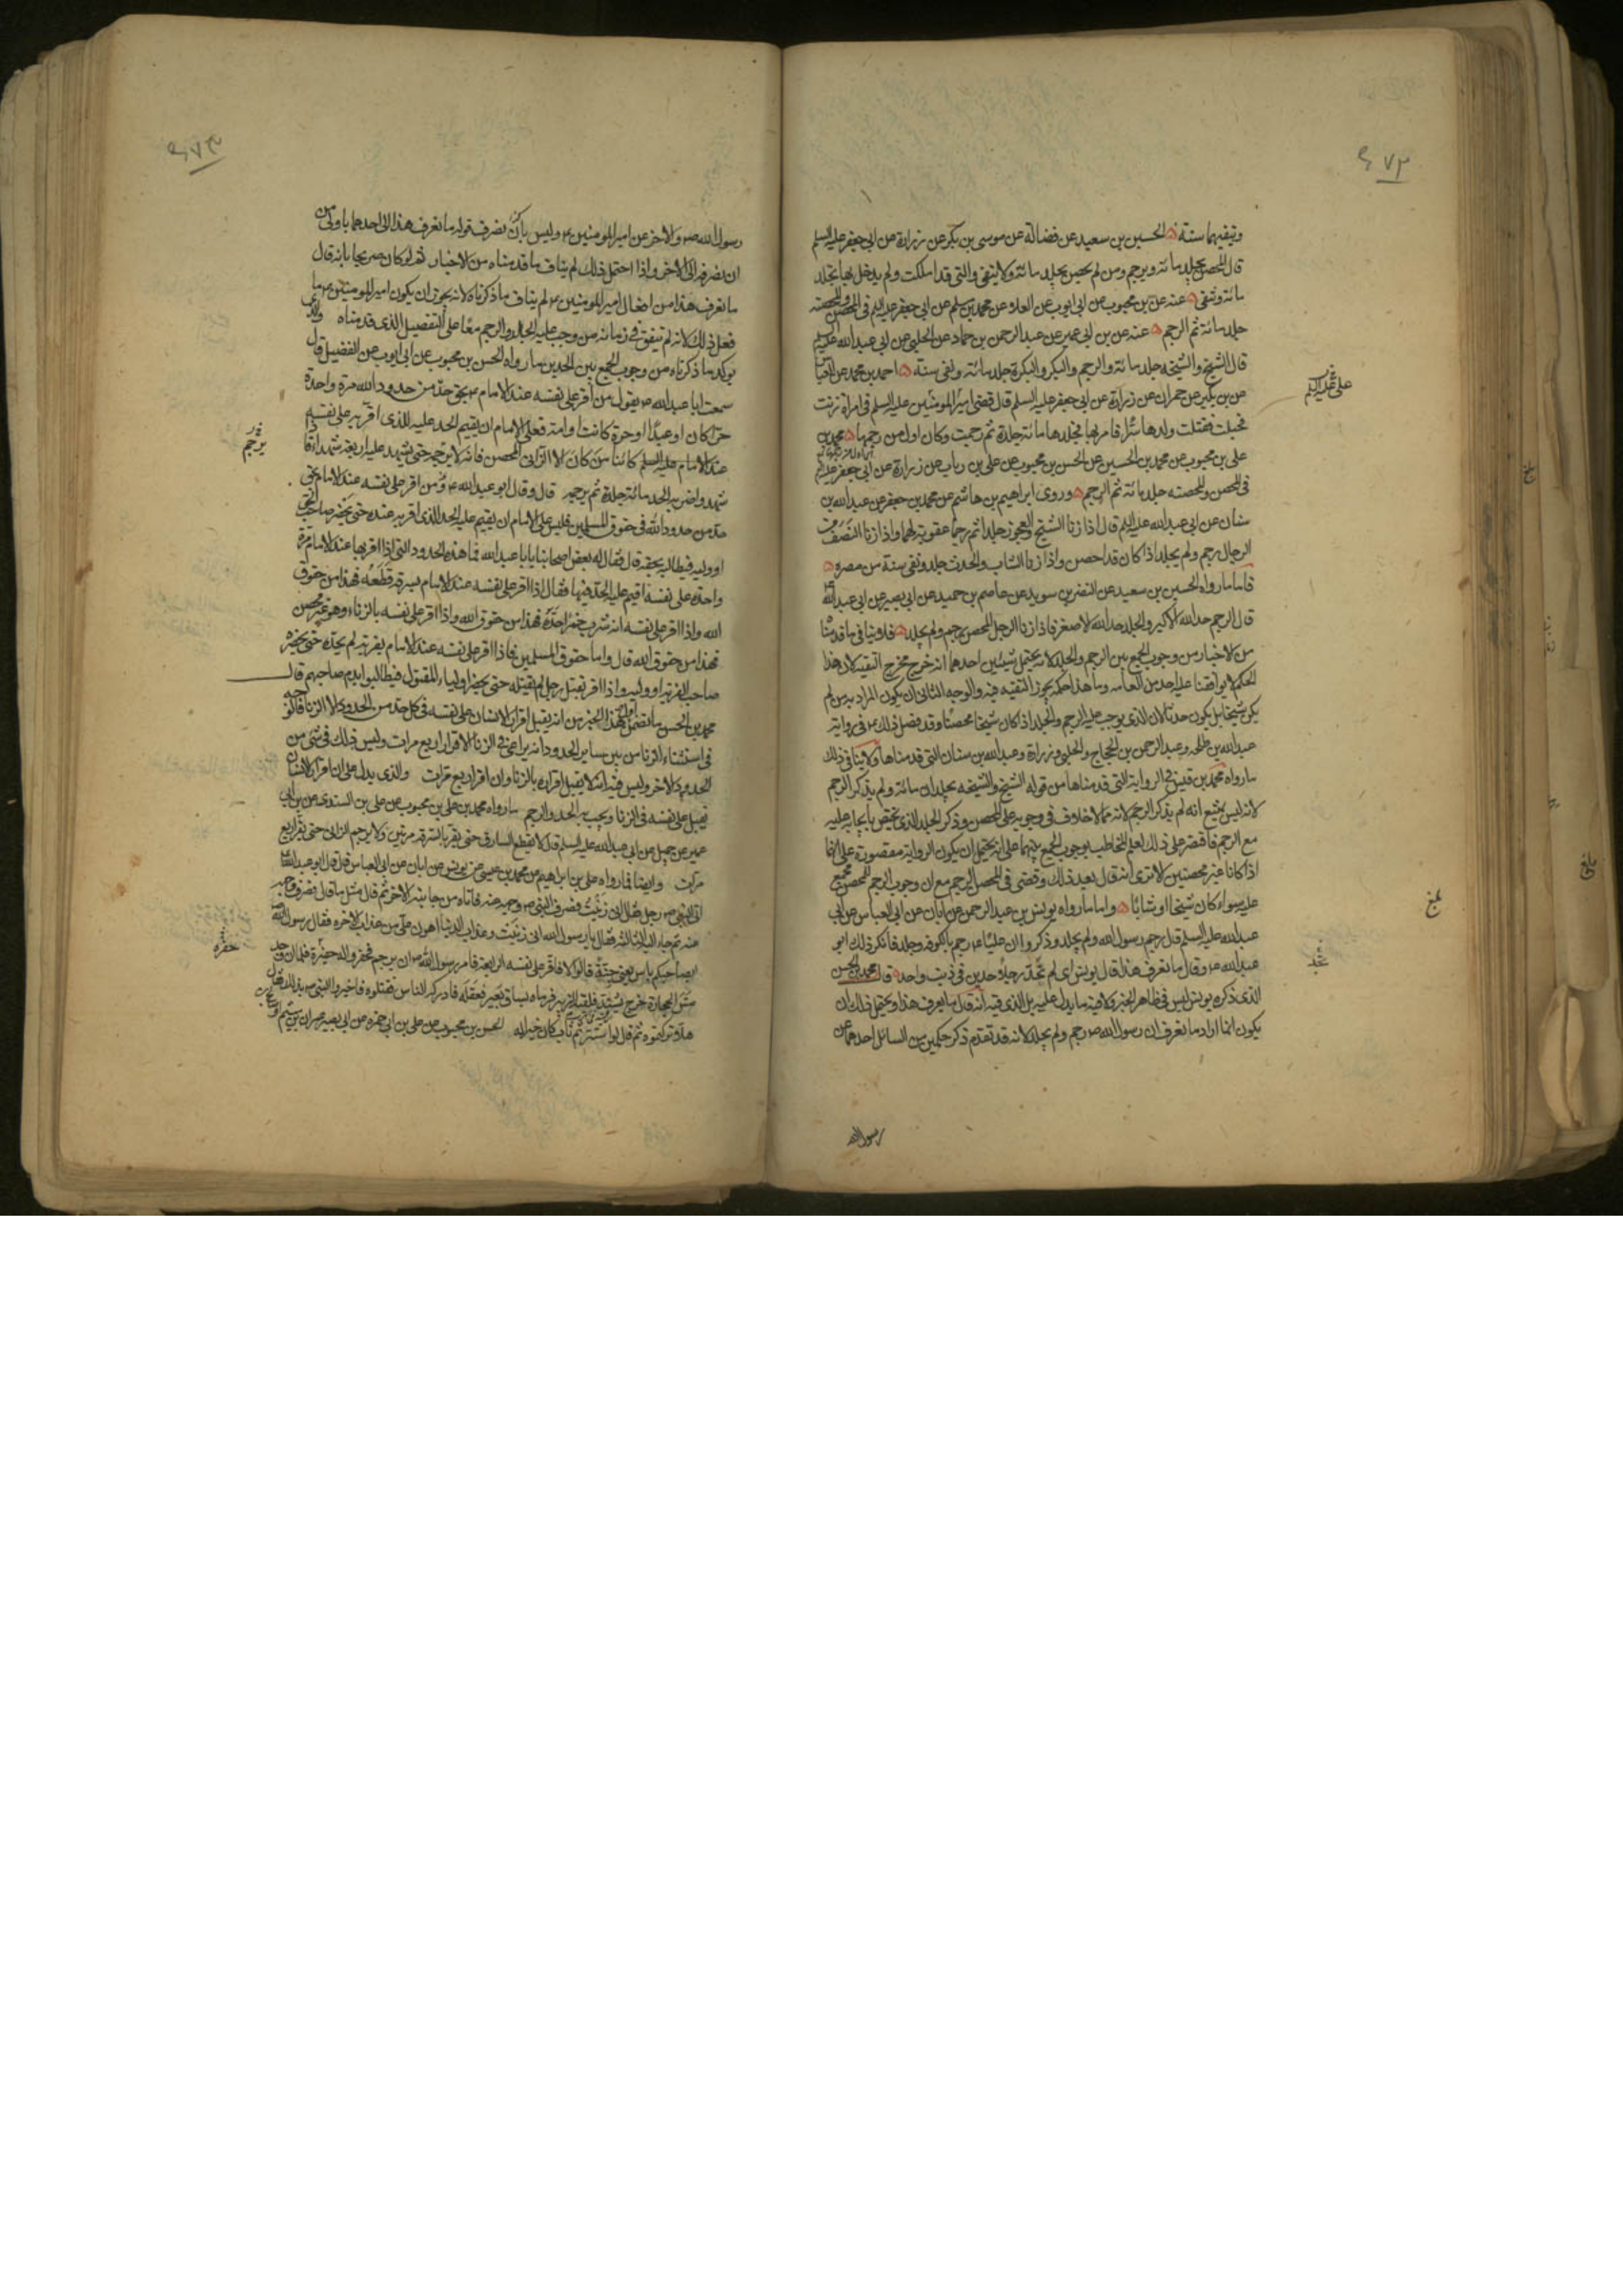 ٤٧٢
وتنفيهما سنة الحسين بن سعيد عن فضالة عن موسى بن بكر عن زرارة عن ابي جعفر عليه السلم
قال المحصن يجلد مائة ويرجم ومن لم يحصن يجلد مائة ولا ينفى والتي قد املكت ولم يدخل بها تجلد
مائة وتنفى عنه عن بن محبوب عن ابي ايوب عن العلاء عن محمد بن مسلم عن ابي جعفر عليه السلم في المحصن والمحصنة
جلد مائة ثم الرجم عنه عن بن ابي عمير عن عبد الرحمن بن حماد عن الحلبي عن ابي عبد الله عليه السلم
قال الشيخ والشيخة جلد مائة والرجم والبكر والبكرة جلد مائة ونفي سنة احمد بن محمد عن العباس
عن بن بكير عن حمران عن زرارة عن ابي جعفر عليه السلم قال قضى امير المومنين عليه السلم في امراة زنت
فحبلت فقتلت ولدها سرا فامر بها فجلدها مائة جلدة ثم رجمت وكان اول من رجمها محمد بن
علي بن محبوب عن محمد بن الحسين عن الحسن بن محبوب عن علي بن رياب عن زرارة عن ابي جعفر عليه السلم
في المحصن والمحصنة جلد مائة ثم الرجم وروى ابراهيم بن هاشم عن محمد بن جعفر عن عبد الله بن
سنان عن ابي عبد الله عليه السلم قال اذا زنا الشيخ والعجوز جلدا ثم رجما عقوبة لهما واذا زنا النصف من
الرجال رجم ولم يجلد اذا كان قد احصن واذا زنا الشاب والحدث جلد ونفي سنة من مصره
فاما ما رواه الحسين بن سعيد عن النضر بن سويد عن عاصم بن حميد عن ابي بصير عن ابي عبد الله
قال الرجم حد الله الاكبر والجلد حد الله الاصغر فاذا زنا الرجل المحصن رجم ولم يجلد فلا ينافي ما قدمنا
من الاخبار من وجوب الجمع بين الرجم والجلد لانه يحتمل شيئين احدهما انه خرج مخرج التقية لان هذا
الحكم لا يوافقنا عليه احد من العامه وما هذا حكمه يجوز التقيه فيه والوجه الثاني ان يكون المراد به من لم
يكن شيخا بل يكون حدثا لان الذي يوجب عليه الرجم والجلد اذا كان شيخا محصنا وقد فصل ذلك في رواية
عبد الله بن طلحه وعبد الرحمن بن الحجاج والحلبي وزرارة وعبد الله بن سنان التي قدمناها ولا ينافي ذلك
ما رواه محمد بن قيس في الرواية التي قدمناها من قوله الشيخ والشيخه يجلدان مائة ولم يذكر الرجم
لانه ليس يمتنع انه لم يذكر الرجم لانه مما لا خلاف في وجوبه على المحصن وذكر الجلد الذي يختص بايجابه عليه
مع الرجم فاقتصر على ذلك لعلم المخاطب بوجوب الجمع بينهما على انه يحتمل ان يكون الرواية مقصورة على انهما
اذا كانا غير محصنين الا ترى انه قال بعد ذلك وقضى في المحصن الرجم مع ان وجوب الرجم للمحصن مجمع
عليه سواء كان شيخا او شابا واما ما رواه يونس بن عبد الرحمن عن ابان عن ابي العباس عن ابي
عبد الله عليه السلم قال رجم رسول الله ولم يجلد وذكروا ان عليا رجم بالكوفه وجلد فانكر ذلك ابو
عبد الله وقال ما نعرف هذا قال يونس اي لم نحد رجلا حدين في ذنب واحد قال محمد بن الحسن
الذي ذكره يونس ليس في ظاهر الخبر ولا فيه ما يدل عليه بل الذي فيه انه قال ما نعرف هذا ويحتمل ذلك ان
يكون انما اراد ما نعرف ان رسول الله رجم ولم يجلد لانه قد تقدم ذكر حكمين من السائل احدهما عن
رسول الله
بلغ
٤٧٣
رسول الله والاخر عن امير المومنين وليس بان نصرف قوله ما نعرف هذا الى احدهما باولى من
ان نصرفه الى الاخر واذا احتمل ذلك لم يناف ما قدمناه من الاخبار ثم لو كان صريحا بانه قال
ما نعرف هذا من افعال امير المومنين لم يناف ما ذكرناه لانه يجوز ان يكون امير المومنين ما
فعل ذلك لانه لم يتفق في زمانه من وجب عليه الجلد والرجم معا على التفصيل الذي قدمناه والذي
يوكد ما ذكرناه من وجوب الجمع بين الحدين ما رواه الحسن بن محبوب عن ابي ايوب عن الفضيل قال
سمعت ابا عبد الله يقول من اقر على نفسه عند الامام بحق حد من حدود الله مرة واحدة
حرا كان او عبدا او حرة كانت او امة فعلى الامام ان يقيم الحد عليه للذي اقر به على نفسه
عند الامام عليه السلم كائنا من كان الا الزاني المحصن فانه لا يرجمه حتى يشهد عليه اربعة شهداء فاذا
شهدوا ضربه الحد مائة جلدة ثم يرجمه قال وقال ابو عبد الله ومن اقر على نفسه عند الامام بحق
حد من حدود الله في حقوق المسلمين فليس على الامام ان يقيم عليه الحد الذي اقر به عنده حتى يحضر صاحب الحق
او وليه فيطالبه بحقه قال فقال له بعض اصحابنا يا ابا عبد الله فما هذه الحدود التي اذا اقر بها عند الامام مرة
واحدة على نفسه اقيم عليه الحد فيها فقال اذا اقر على نفسه عند الامام بسرقة قطعه فهذا من حقوق
الله واذا اقر على نفسه انه شرب خمرا حده فهذا من حقوق الله واذا اقر على نفسه بالزناء وهو غير محصن
فهذا من حقوق الله قال واما حقوق المسلمين فاذا اقر على نفسه عند الامام بفرية لم يحده حتى يحضر
صاحب الفرية او وليه واذا اقر بقتل رجل لم يقتله حتى يحضر اولياء المقتول فيطالبوا بدم صاحبهم قال
محمد بن الحسن ما تضمن اول هذا الخبر من انه يقبل اقرار الانسان على نفسه في كل حد من الحدود الا الزنا فالوجه
في استثناء الزنا من بين ساير الحدود انه يراعى في الزنا الاقرار اربع مرات وليس ذلك في شي من
الحدود الاخر وليس فيه انه لا يقبل اقراره بالزنا وان اقر اربع مرات والذي يدل على ان اقرار الانسان
يقبل على نفسه في الزنا ويجب به الحد والرجم ما رواه محمد بن علي بن محبوب عن علي بن السندي عن بن ابي
عمير عن جميل عن ابي عبد الله عليه السلم قال لا يقطع السارق حتى يقر بالسرقة مرتين ولا يرجم الزاني حتى يقر اربع
مرات وايضا فما رواه علي بن ابراهيم عن محمد بن عيسى عن يونس عن ابان عن ابي العباس قال قال ابو عبد الله
اتى النبي رجل فقال اني زنيت فصرف النبي وجهه عنه فاتاه من جانبه الاخر ثم قال مثل ما قال فصرف وجهه
عنه ثم جاء اليه الثالثة فقال يا رسول الله اني زنيت وعذاب الدنيا اهون علي من عذاب الاخره فقال رسول الله
ابصاحبكم باس يعني جنة قالوا لا فاقر على نفسه الرابعة فامر رسول الله ان يرجم فحفروا له حفيرة فلما ان وجد
مس الحجارة خرج يشتد فلقيه الزبير فرماه بساق بعير فعقله فادركه الناس فقتلوه فاخبروا النبي بذلك فقال
هلا تركتموه ثم قال لو استتر ثم تاب كان خيرا له الحسن بن محبوب عن علي بن ابي حمزه عن ابي بصير عن
يرجم
حفره